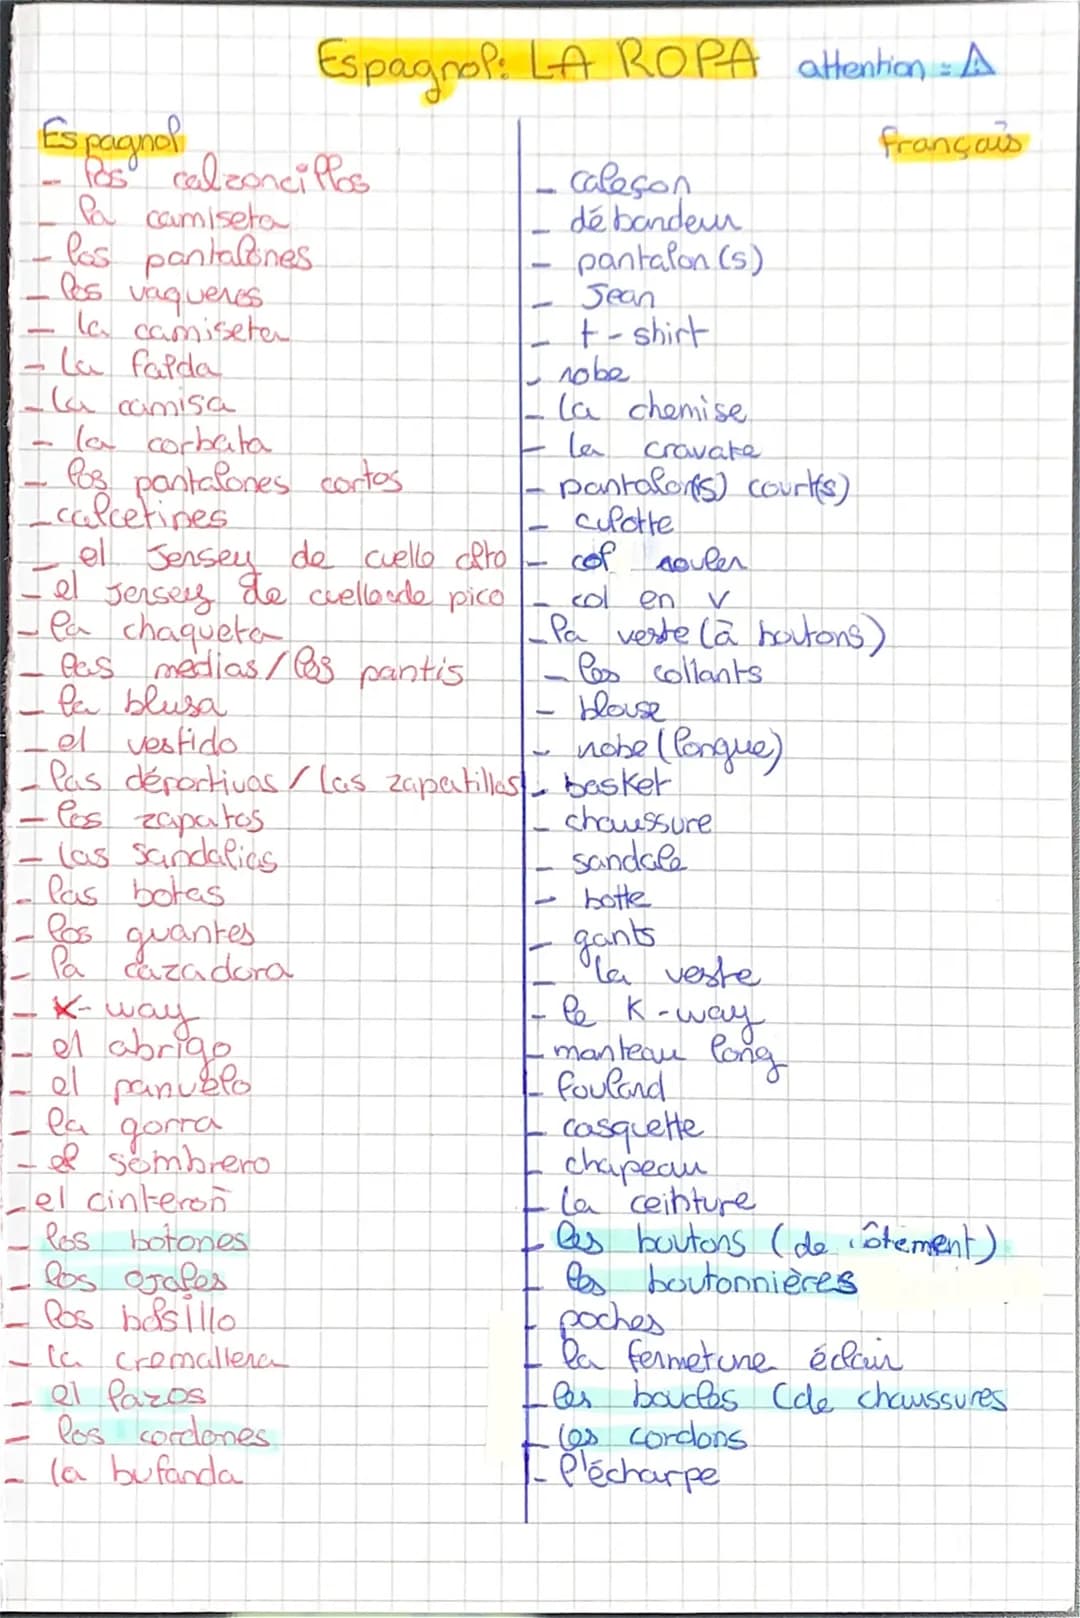 Espagnol: LA ROPA attention = ⚠
Espagnol français
- los calzoncillos - caleçon
- la camiseta - débardeur
- los pantalones - pantalon(s)
- los vaqueros - Jean
- la camiseta - t-shirt
- La falda - robe
- la camisa - la chemise
- la corbata - la cravate
- los pantalones cortos - pantalon(s) court(s)
- calcetines - culotte
- el Jersey de cuello alto - col rouler
- el Jersey de cuello de pico - col en V
- la chaqueta - la veste (à boutons)
- las medias / los pantis - les collants
- la blusa - blouse
- el vestido - robe (longue)
- las déportivas / las zapatillas - basket
- los zapatos - chaussure
- las sandalias - sandale
- las botas - botte
- los guantes - gants
- la cazadora - la veste
- K-way - le K-way
- el abrigo - manteau long
- el panuelo - foulard
- la gorra - casquette
- el sombrero - chapeau
- el cinteroñ - la ceinture
- los botones - les boutons (de
- los ojales - les boutonnières
- los bolsillo - poches
- la cremallera - la fermeture éclair
- el lazos - les boucles (de chaussures
- los cordones - les cordons
- la bufanda - l'écharpe